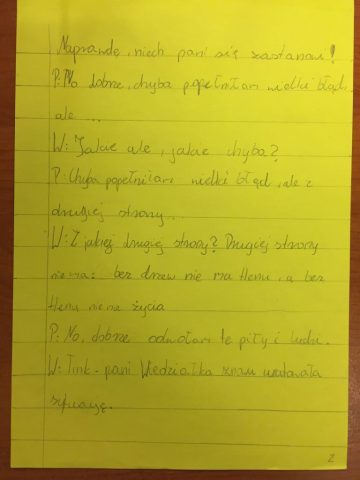 Naprawdę, niech pani się zastanowi!
P: No dobrze, chyba popełniłam wielki błąd,
ale ...
W: Jakie ale, jakie chyba?
P: Chyba popełniłam wielki błąd, ale z
drugiej strony...
W: Z jakiej drugiej strony? Drugiej strony
nie ma: bez drzew nie ma tlenu, a bez
tlenu nie ma życia
P: No, dobrze odwołam te piły i ludzi.
W: Tink - pani Wiedziołka znowu uratowała
sytuację.
2